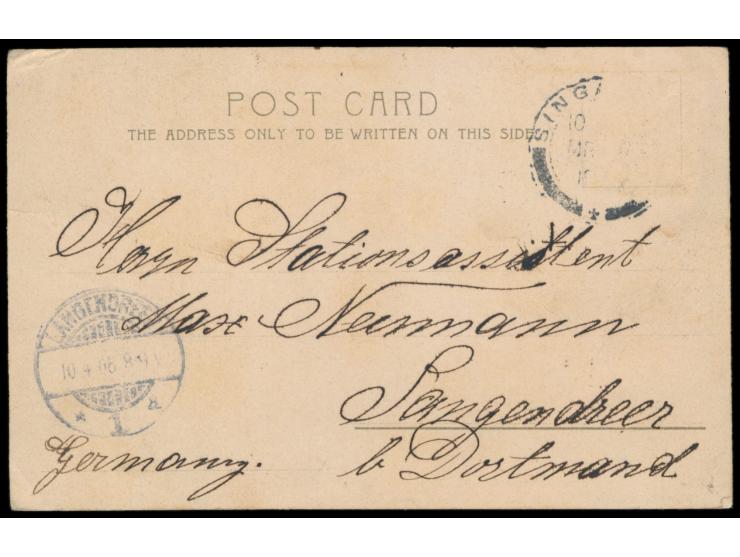 POST CARD
THE ADDRESS ONLY TO BE WRITTEN ON THIS SIDE.
SINGA
10
MR
Herrn Stationsassistent
Max Neumann
Langendreer
b Dortmund
Germany.
LANGENDREER
10.4.06.8-9V.
* 1 a